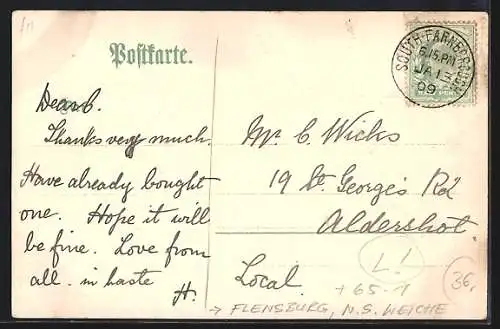 fn
Postkarte.
SOUTH-FARNBOROUGH
6.15.PM
JA 13
09
Dear C.
Thanks very much.
Have already bought
one. Hope it will
be fine. Love from
all. in haste
H.
Mr C. Wicks
19 St. George's Rd
Aldershot
Local.
L!
+65-1
36,
→ FLENSBURG, N.S. WEICHE